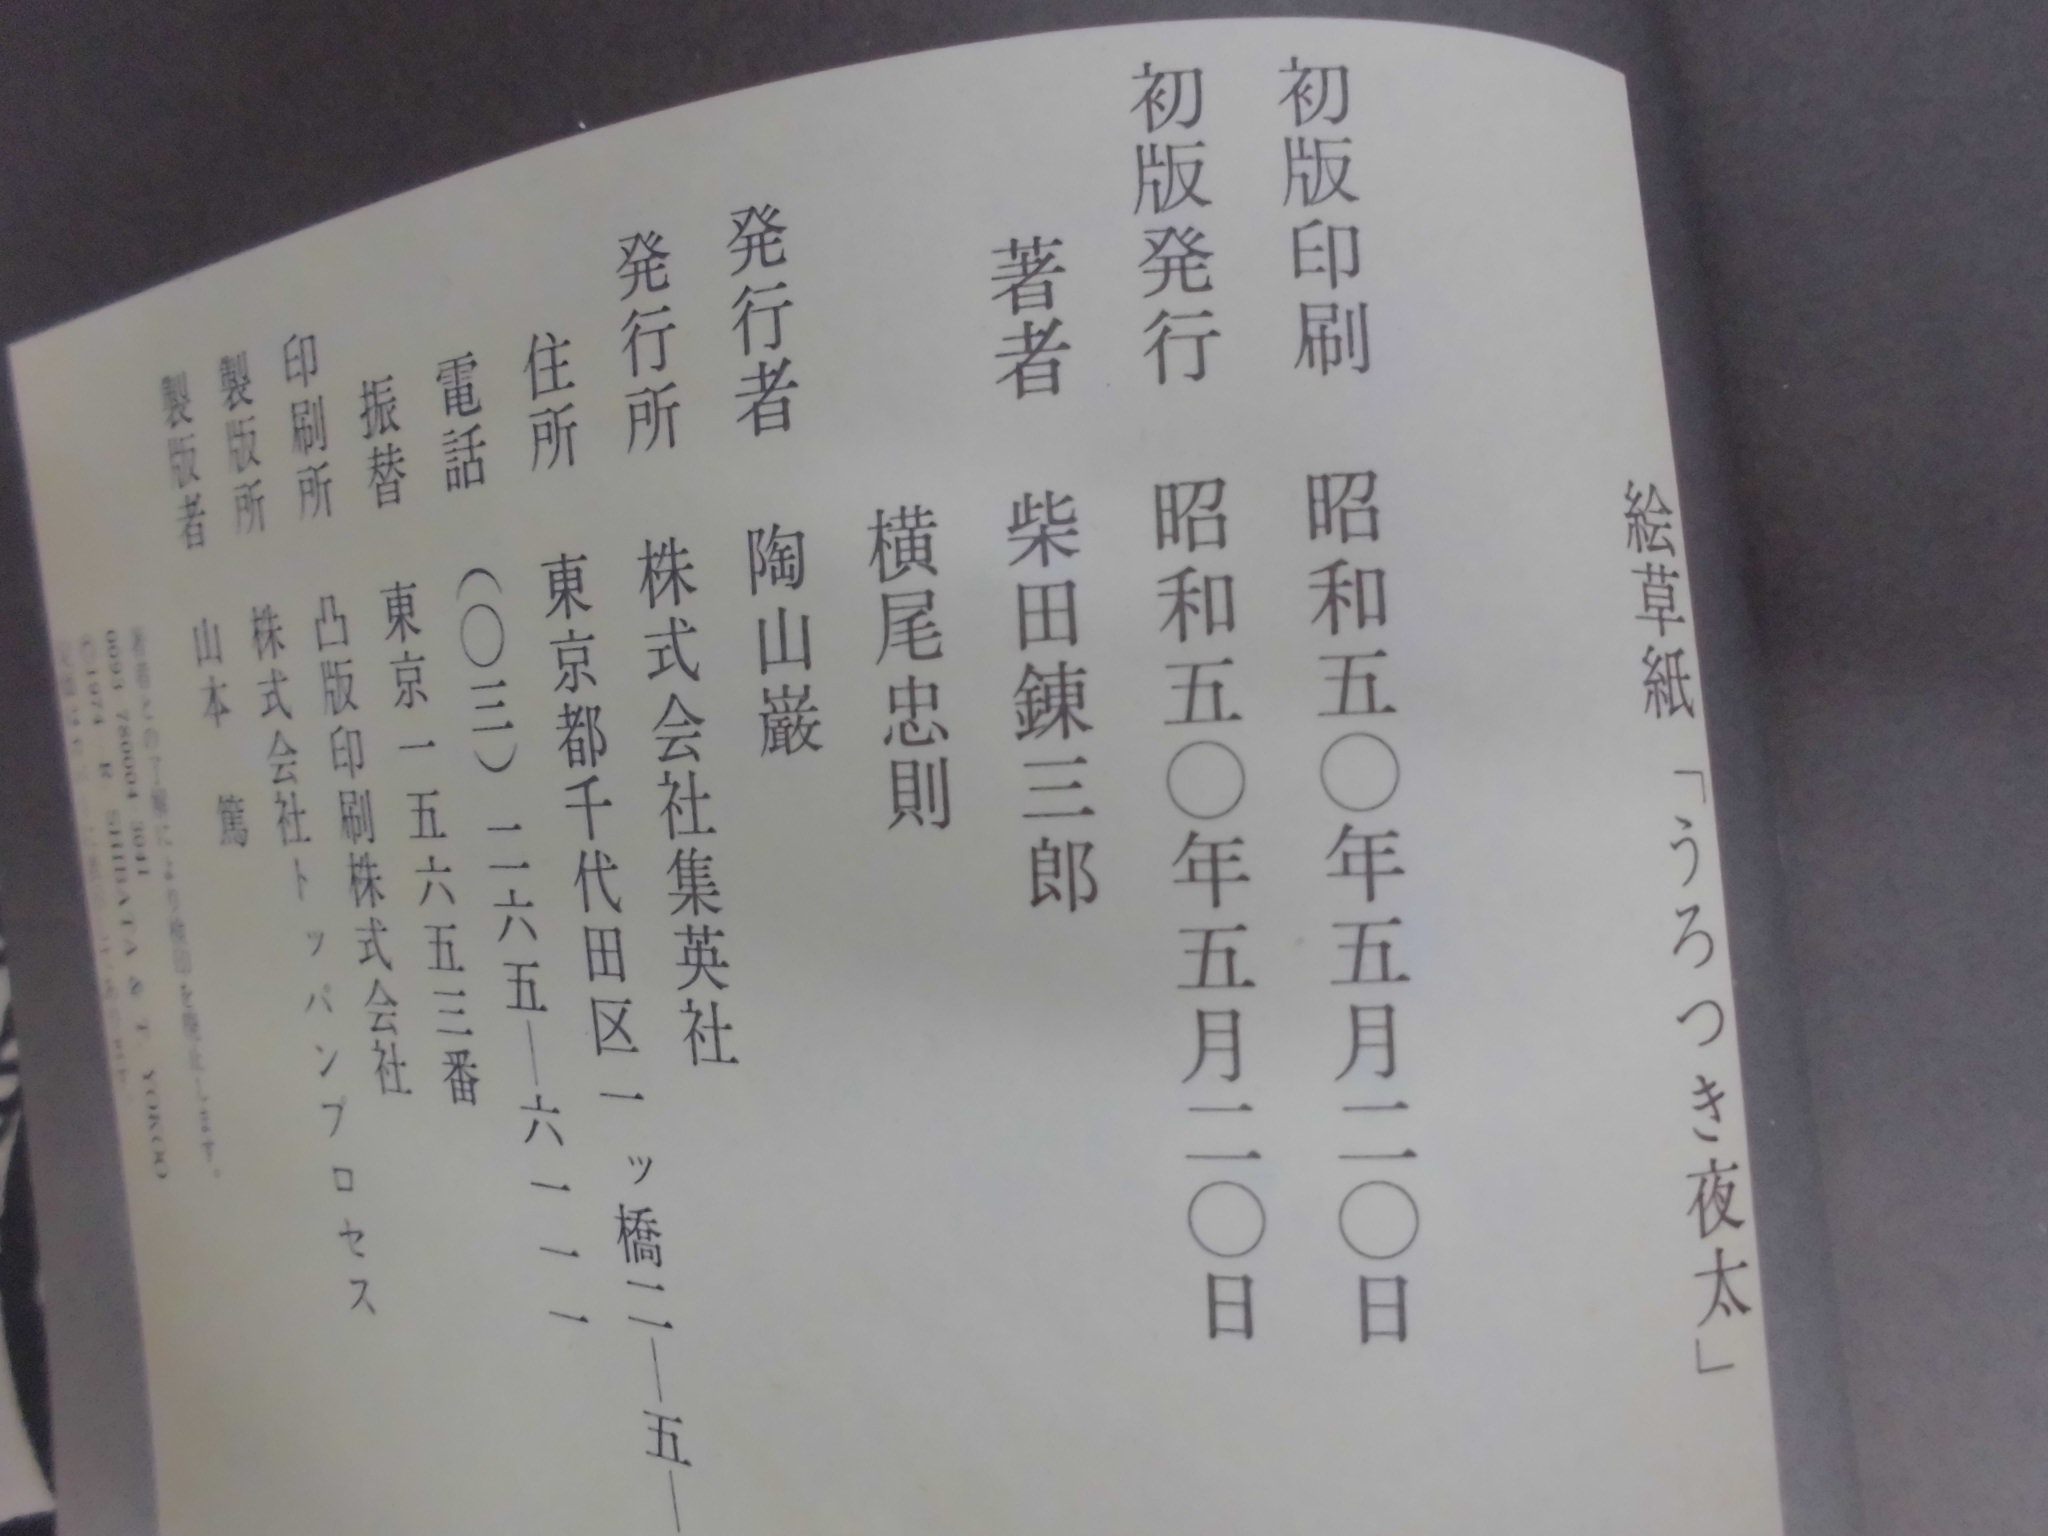 絵草紙「うろつき夜太」
初版印刷 昭和五〇年五月二〇日
初版発行 昭和五〇年五月二〇日
著者 柴田錬三郎
横尾忠則
発行者 陶山巌
発行所 株式会社集英社
住所 東京都千代田区一ッ橋二―五―
電話 (〇三)二六五―六一一一
振替 東京一五六五三番
印刷所 凸版印刷株式会社
製版所 株式会社トッパンプロセス
製版者 山本 篤
により検印を廃止します。
0093 780004 3041
©1974 R SHIBATA & T YOKOO